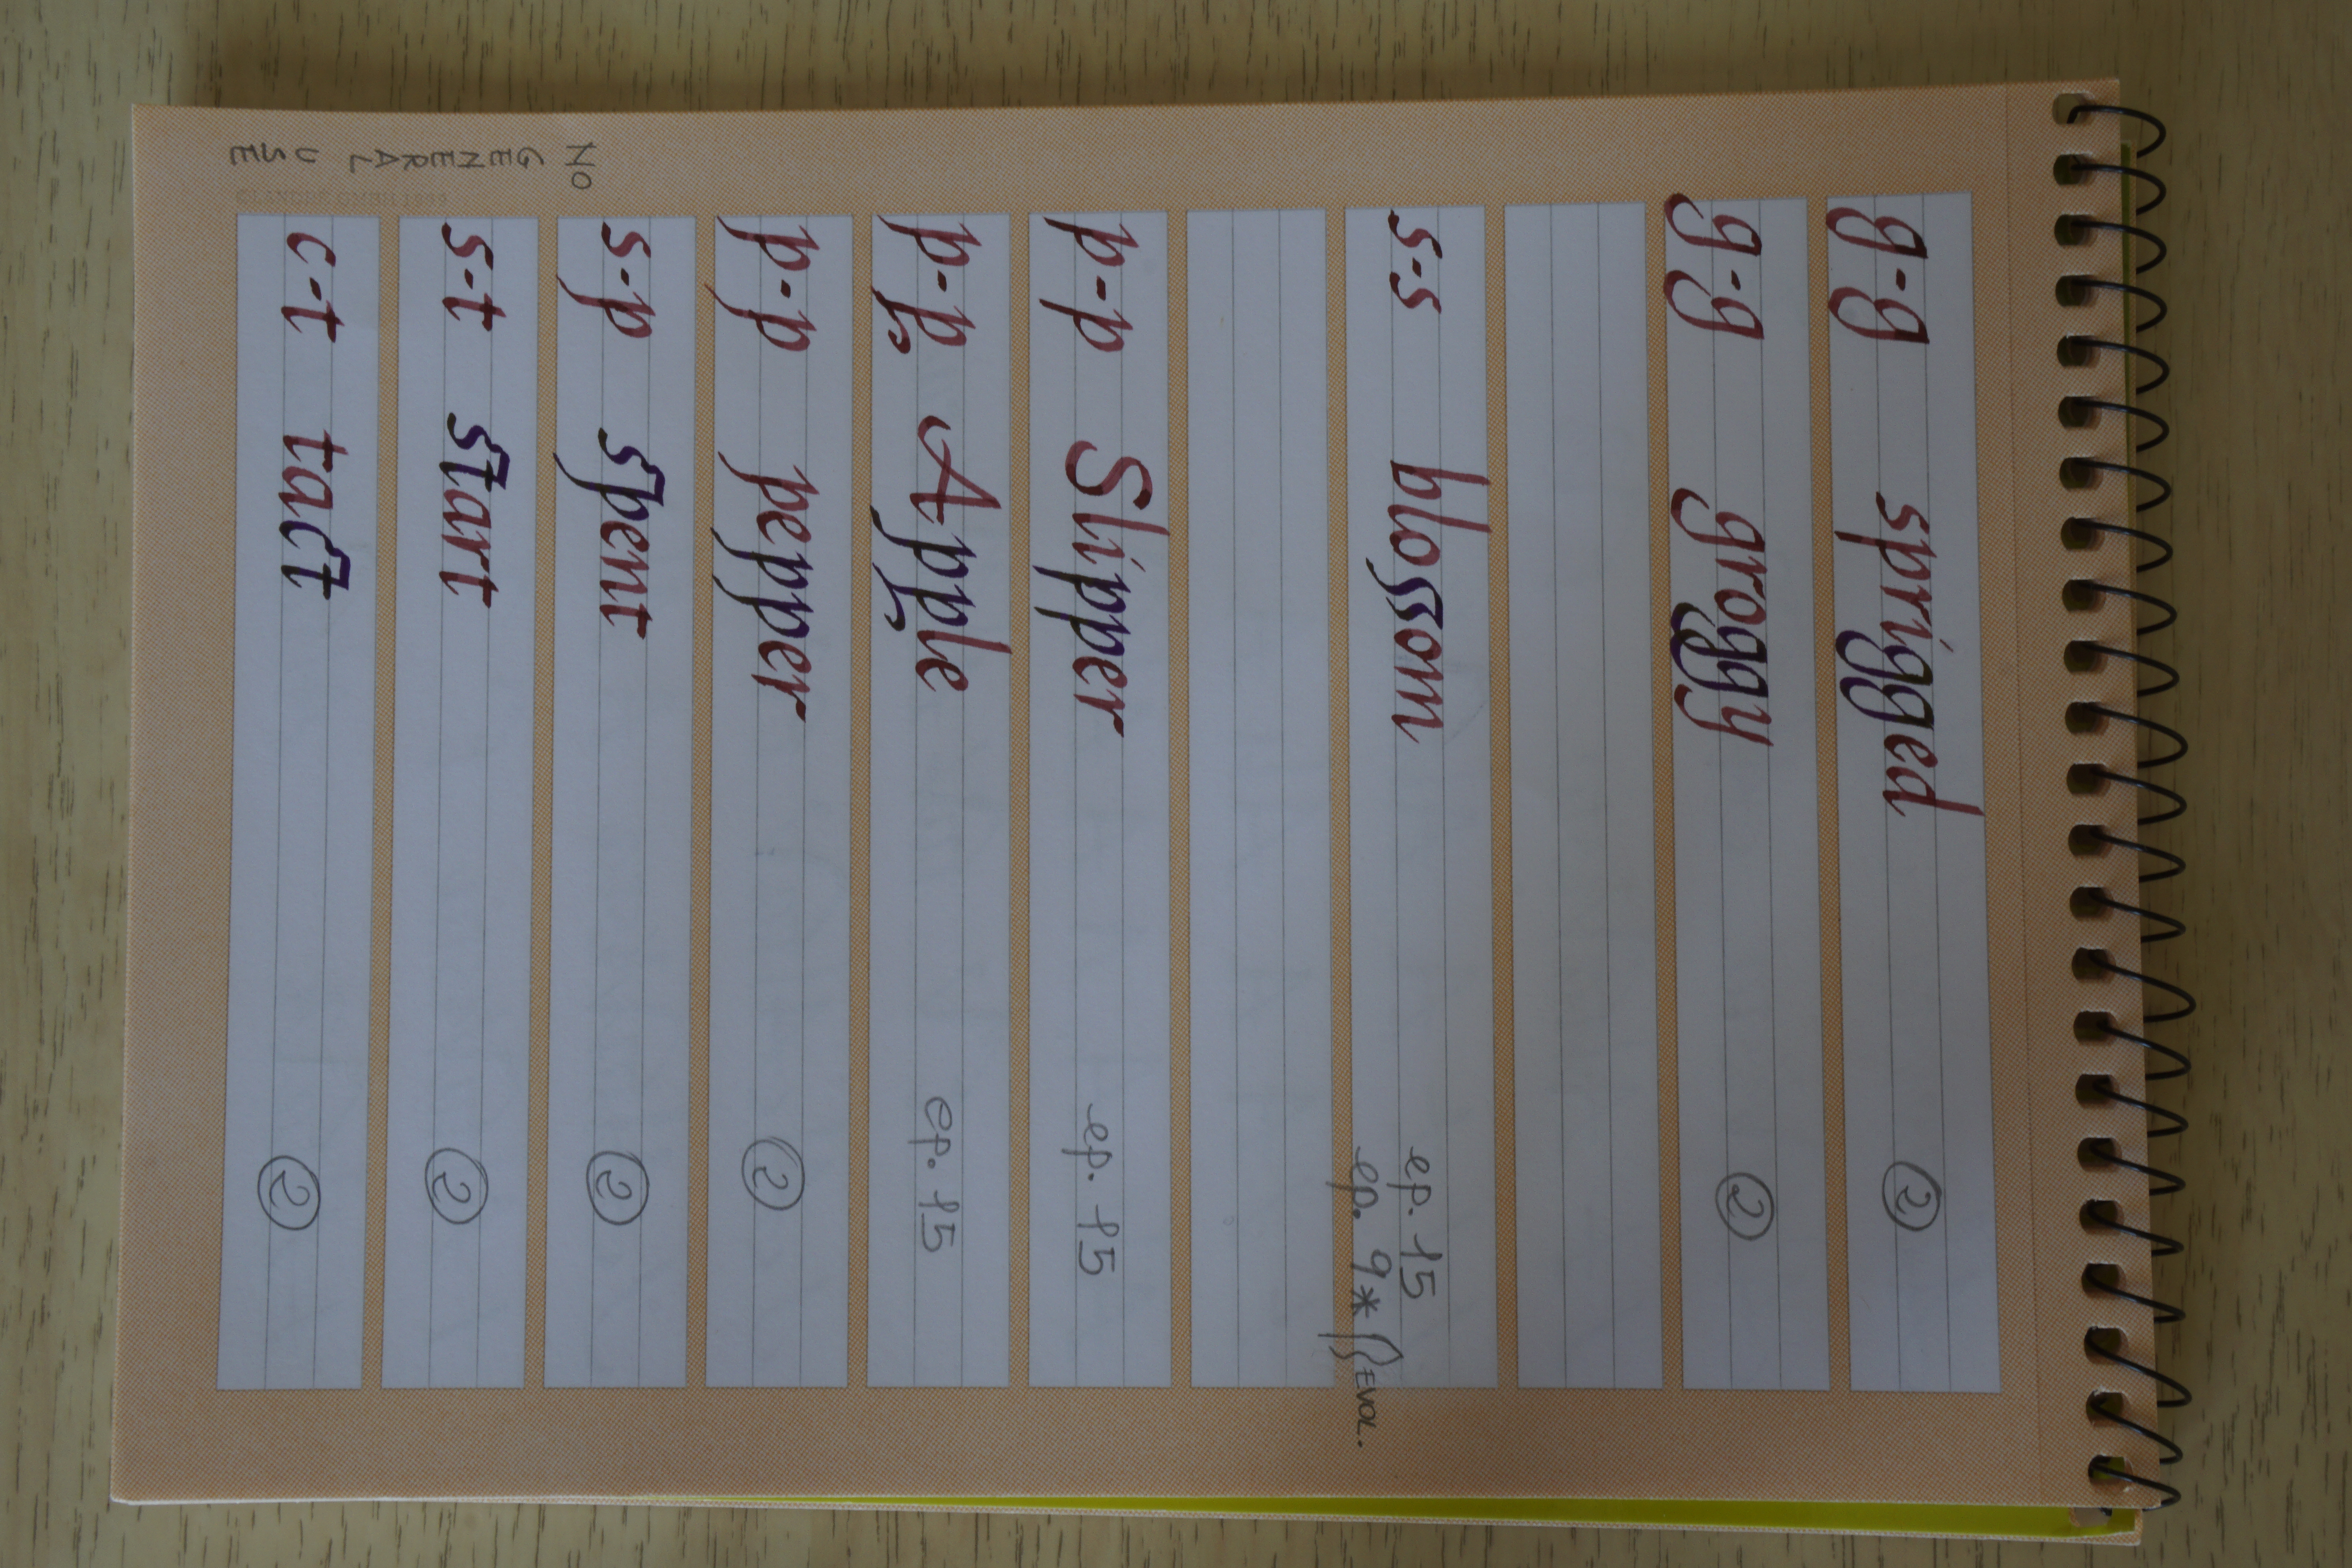 g-g sprigged ②
g-g groggy ②
s-s blossom ep. 15
ep. 9* EVOL.
p-p Slipper ep. 15
p-p Apple ep. 15
p-p pepper ②
s-p spent ②
s-t start ②
c-t tact ②
NO
GENERAL
USE